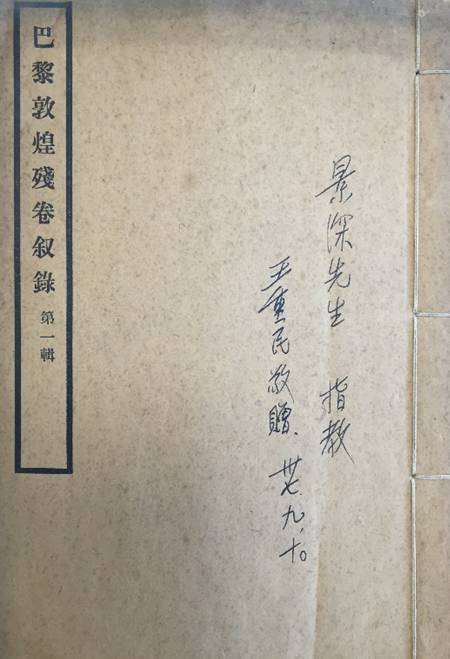 巴黎敦煌殘卷叙錄 第一輯
景深先生 指教
王重民敬贈 卅七.九.十。